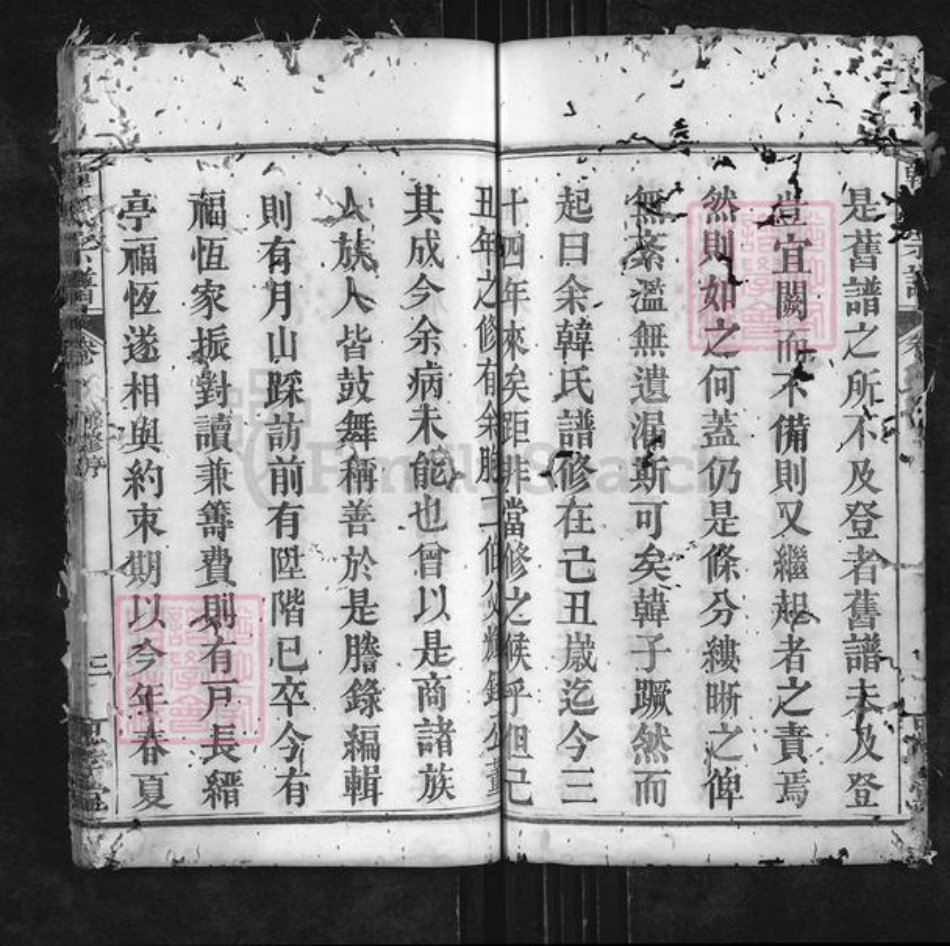 是舊譜之所不及登者舊譜未及登
豈宜闕而不備則又繼起者之責焉
然則如之何蓋仍是條分縷晰之俾
無紊濫無遺漏斯可矣韓子蹶然而
起曰余韓氏譜修在己丑歲迄今三
十四年來矣距非當修之候乎但己
丑年之修有余
其成今余病未能也曾以是商諸族
人族人皆鼓舞稱善於是謄錄編輯
則有月山踩訪前有陞階已卒今有
福恆家振對讀兼籌費則有戸長縉
亭福恆遂相與約束期以今年春夏
二
FamilySearch